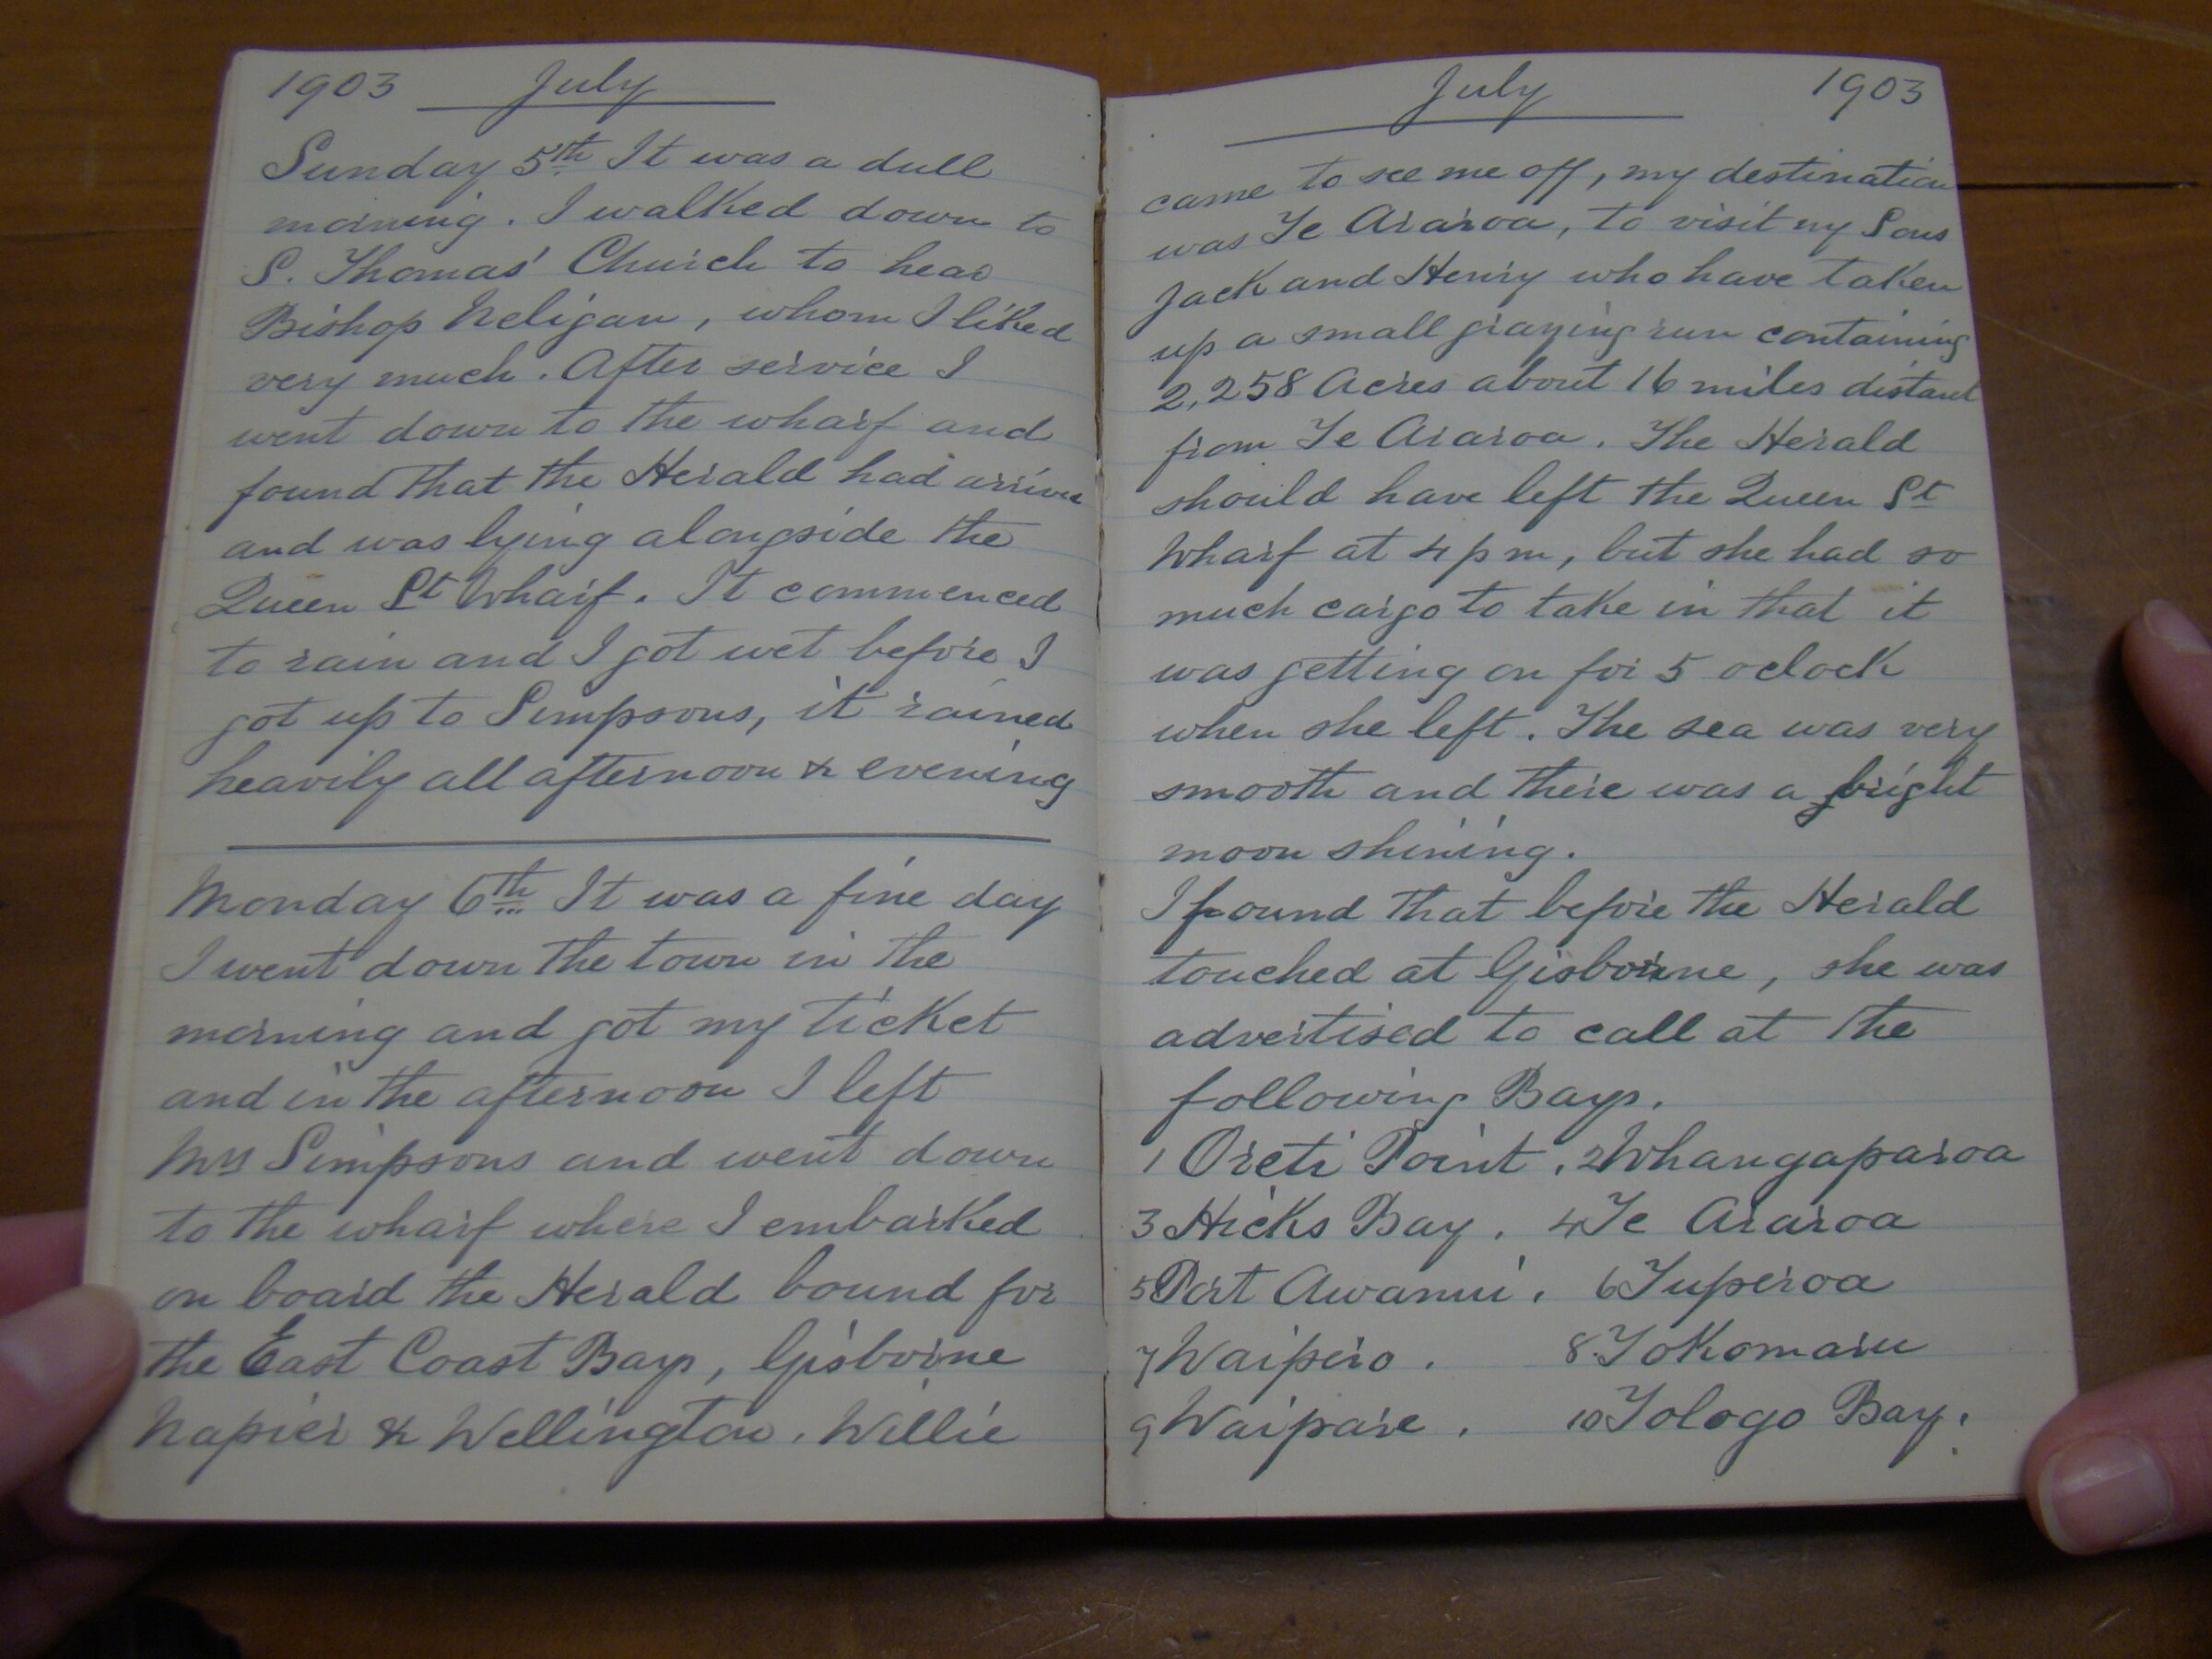 1903 July
Sunday 5th It was a dull
morning. I walked down to
S. Thomas' Church to hear
Bishop Neligan, whom I liked
very much. After service I
went down to the wharf and
found that the Herald had arrived
and was lying alongside the
Queen St Wharf. It commenced
to rain and I got wet before I
got up to Simpsons, it rained
heavily all afternoon & evening
Monday 6th It was a fine day
I went down the town in the
morning and got my ticket
and in the afternoon I left
Mrs Simpsons and went down
to the wharf where I embarked
on board the Herald bound for
the East Coast Bays, Gisborne
Napier & Wellington. Willie
July 1903
came to see me off, my destination
was Te Araroa, to visit my Sons
Jack and Henry who have taken
up a small grazing run containing
2,258 Acres about 16 miles distant
from Te Araroa. The Herald
should have left the Queen St
Wharf at 4 pm, but she had so
much cargo to take in that it
was getting on for 5 oclock
when she left. The sea was very
smooth and there was a bright
moon shining.
I found that before the Herald
touched at Gisborne, she was
advertised to call at the
following Bays.
1 Oreti Point. 2 Whangaparoa
3 Hicks Bay. 4 Te Araroa
5 Port Awanui. 6 Tuperoa
7 Waipiro. 8. Tokomaru
9 Waipare. 10 Tologo Bay.